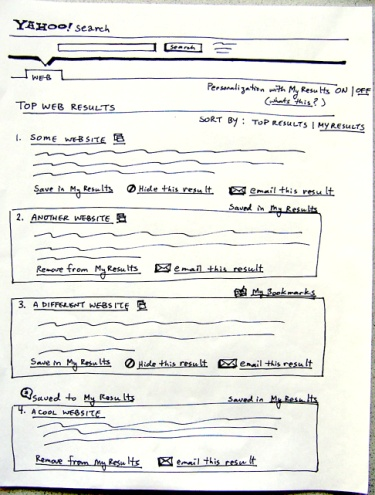 YAHOO! search
search
WEB
Personalization with My Results ON | OFF
(whats this?)
TOP WEB RESULTS
SORT BY: TOP RESULTS | MY RESULTS
1. SOME WEBSITE
Save in My Results Hide this result email this result
Saved in My Results
2. ANOTHER WEBSITE
Remove from My Results email this result
My Bookmarks
3. A DIFFERENT WEBSITE
Save in My Results Hide this result email this result
Saved to My Results Saved in My Results
4. A COOL WEBSITE
Remove from My Results email this result